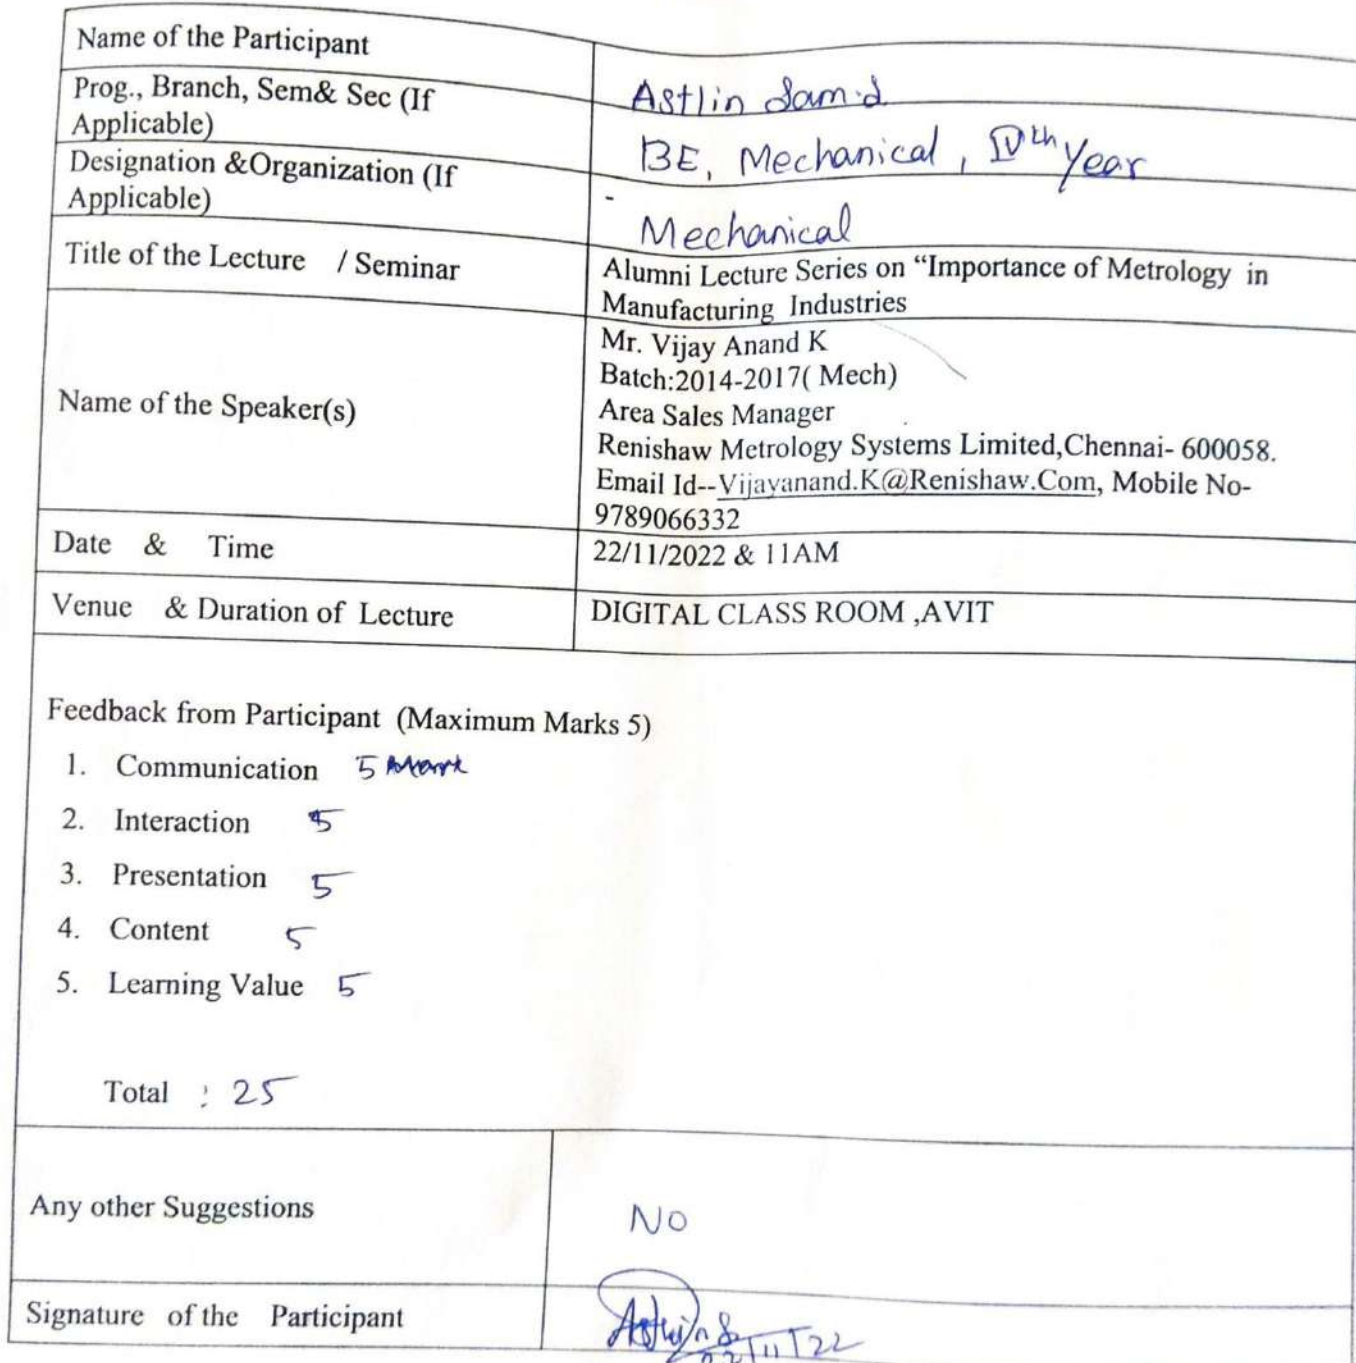 Name of the Participant
Astlin Sam.d
Prog., Branch, Sem& Sec (If
Applicable)
BE, Mechanical, IVth Year
Designation &Organization (If
Applicable)
-
Mechanical
Title of the Lecture / Seminar
Alumni Lecture Series on “Importance of Metrology in
Manufacturing Industries
Name of the Speaker(s)
Mr. Vijay Anand K
Batch:2014-2017( Mech)
Area Sales Manager
Renishaw Metrology Systems Limited,Chennai- 600058.
Email Id--Vijayanand.K@Renishaw.Com, Mobile No-
9789066332
Date & Time
22/11/2022 & 11AM
Venue & Duration of Lecture
DIGITAL CLASS ROOM ,AVIT
Feedback from Participant (Maximum Marks 5)
1. Communication 5 Mark
2. Interaction 5
3. Presentation 5
4. Content 5
5. Learning Value 5
Total : 25
Any other Suggestions
NO
Signature of the Participant
22/11/22